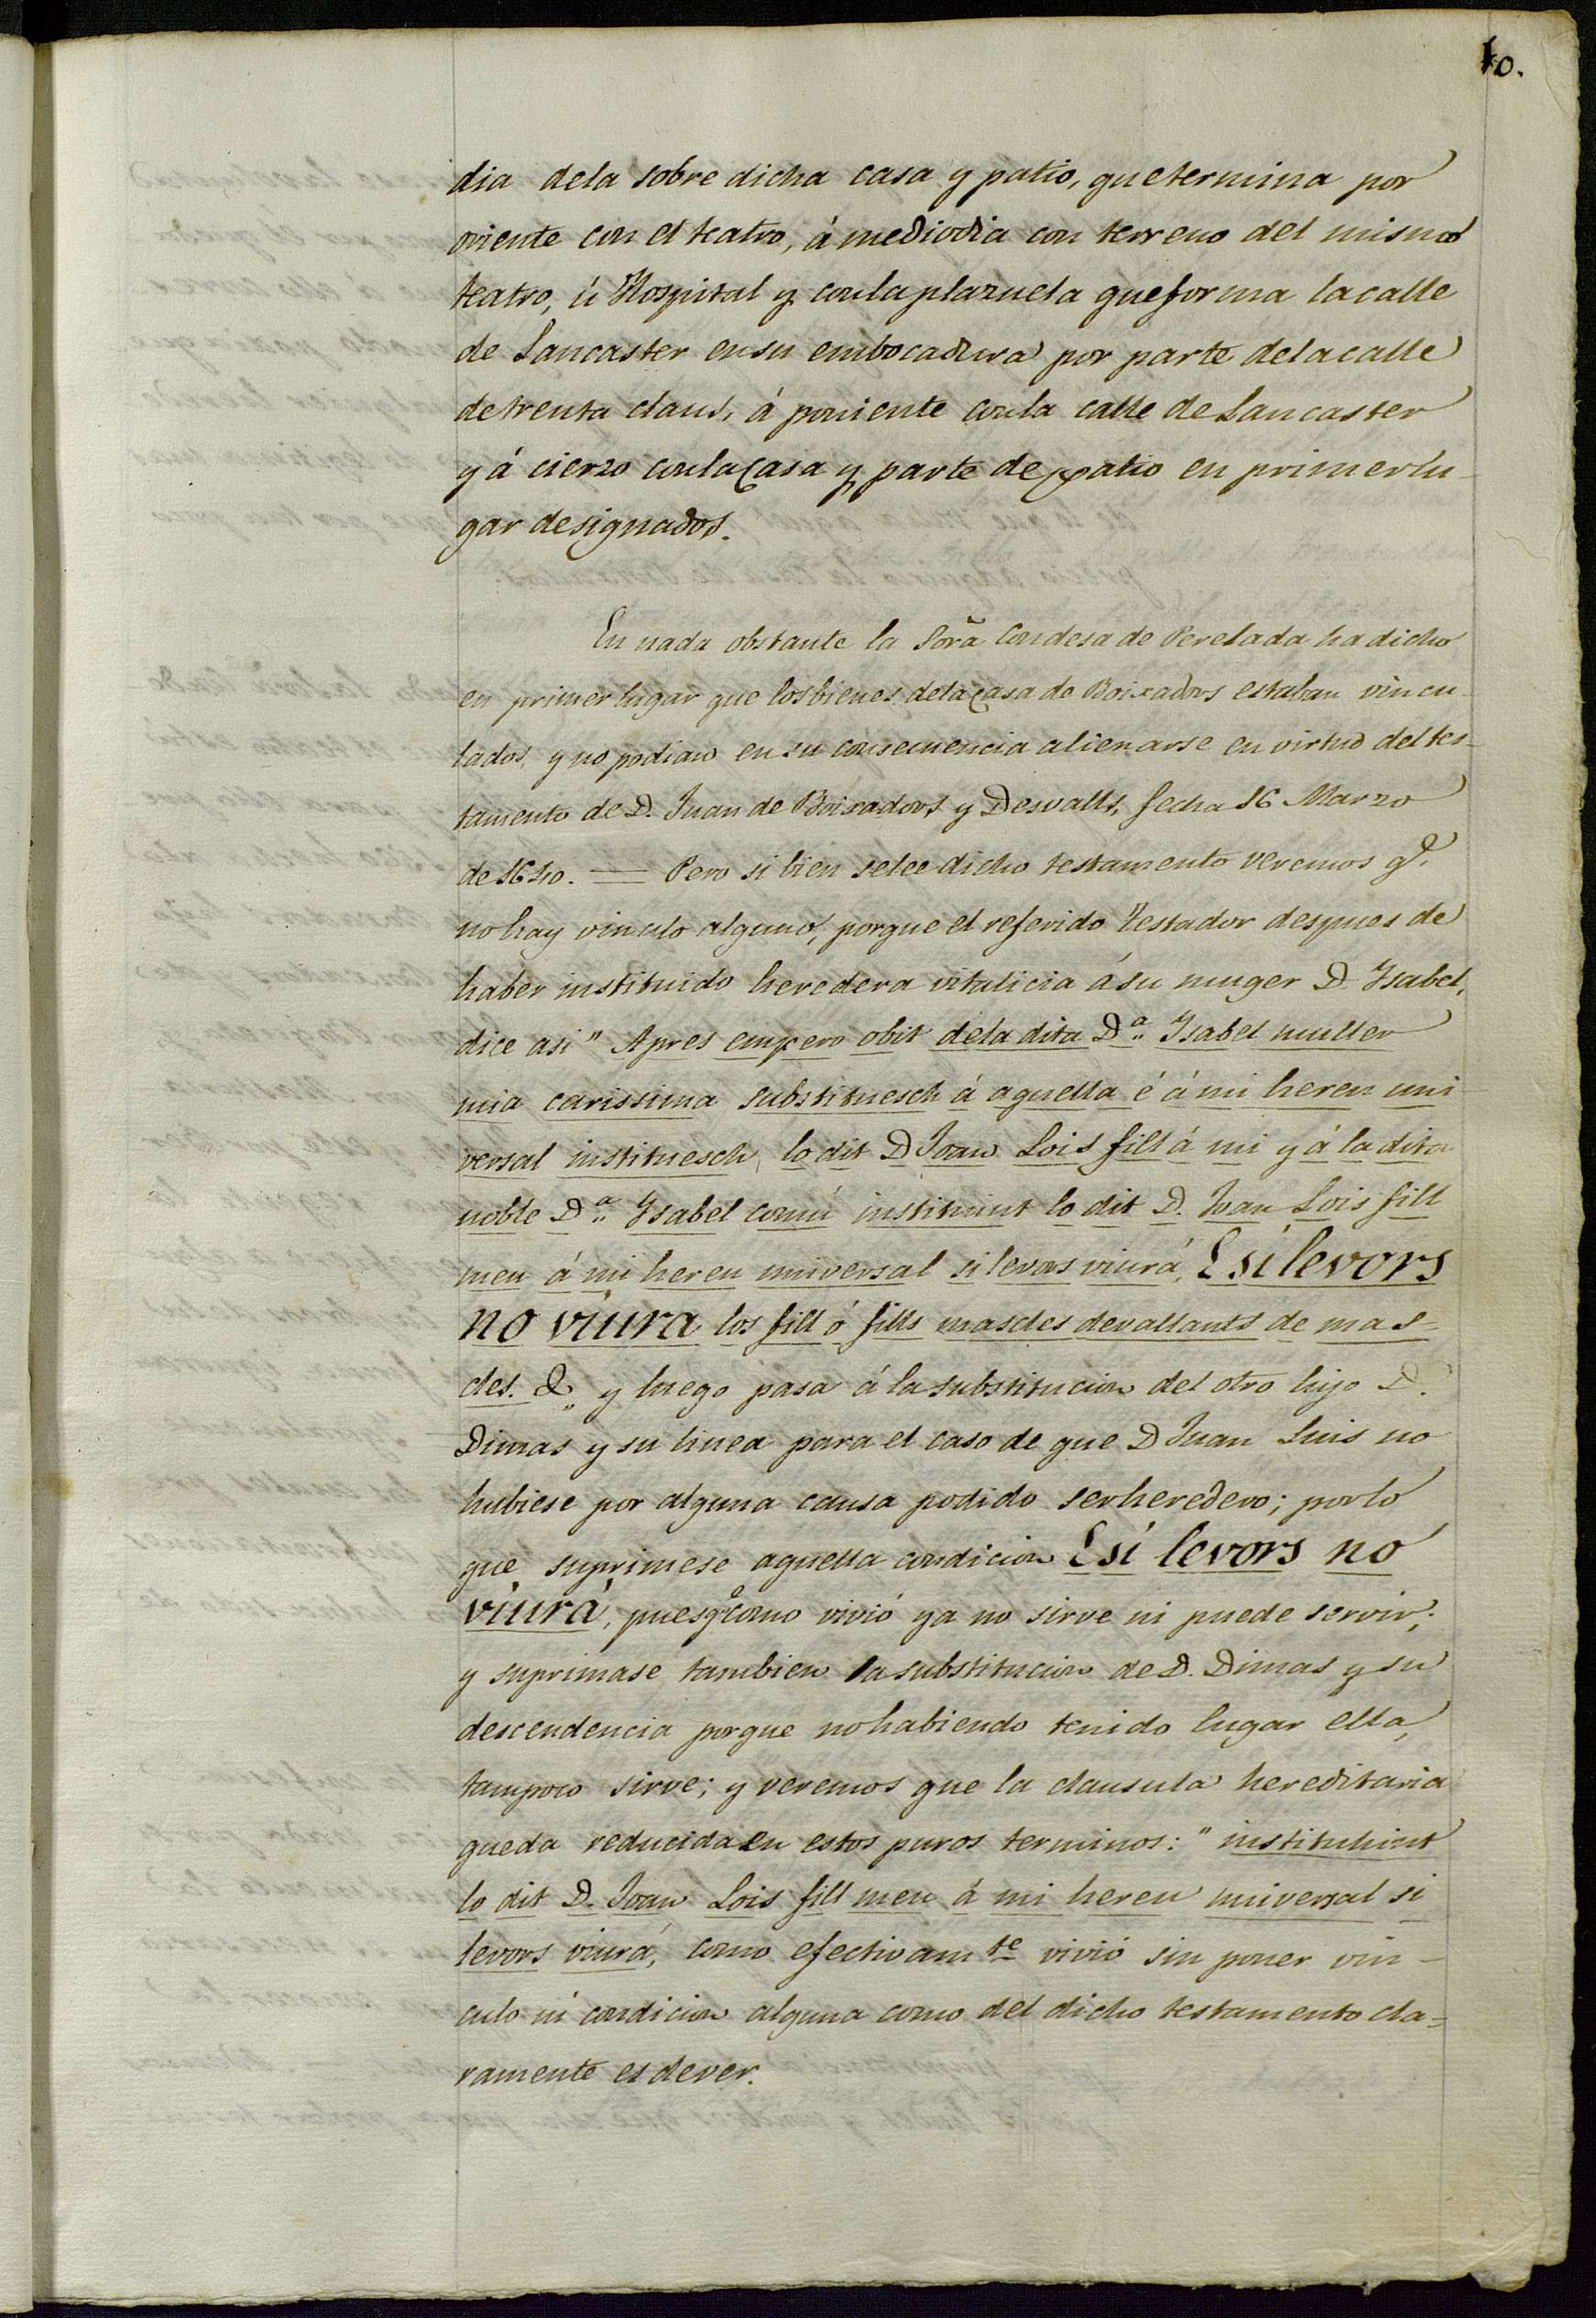 10.
dia dela sobre dicha casa y patio, que termina por
oriente con el teatro, á mediodia con terreno del mismo
teatro, ú Hospital y conla plazuela que forma la calle
de Lancaster en su embocadura por parte dela calle
de trenta claus, á poniente conla calle de Lancaster
y á cierzo conla casa y parte de patio en primer lu-
gar designados.
En nada obstante la Sorã Condesa de Perelada ha dicho
en primer lugar que los bienes dela casa de Boixadors estaban vincu-
lados, y no podian en su consecuencia alienarse en virtud del tes-
tamento de D. Juan de Boixadors y Desvalls, fecha 16 Marzo
de 1640. — Pero si bien se lee dicho testamento veremos q.e
no hay vinculo alguno, porque el referido Testador despues de
haber instituido heredera vitalicia á su muger D. Ysabel,
dice asi " Apres empero obit dela dita D.a Ysabel muller
mia carissima substituesch á aquella é á mi hereu uni
versal instituesch, lo dit D Joan Lois fill á mi y á la dita
noble D.a Ysabel comú instituint lo dit D. Joan Lois fill
meu á mi hereu universal si levors viurá, E si levors
no viura los fill ó fills mascles devallants de mas-
cles. &, y luego pasa á la substitucion del otro hijo D.
Dimas y su linea para el caso de que D Juan Luis no
hubiese por alguna causa podido ser heredero; por lo
que suprimese aquella condicion E si levors no
viurá, pues q.e como vivió ya no sirve ni puede servir;
y suprimase tambien la substitucion de D. Dimas y su
descendencia porque no habiendo tenido lugar ella,
tampoco sirve; y veremos que la clausula hereditaria
queda reducida en estos puros terminos: " instituhint
lo dit D. Joan Lois fill meu á mi hereu universal si
levors viurá, como efectivam.te vivió sin poner vin-
culo ni condicion alguna como del dicho testamento cla=
ramente es dever.